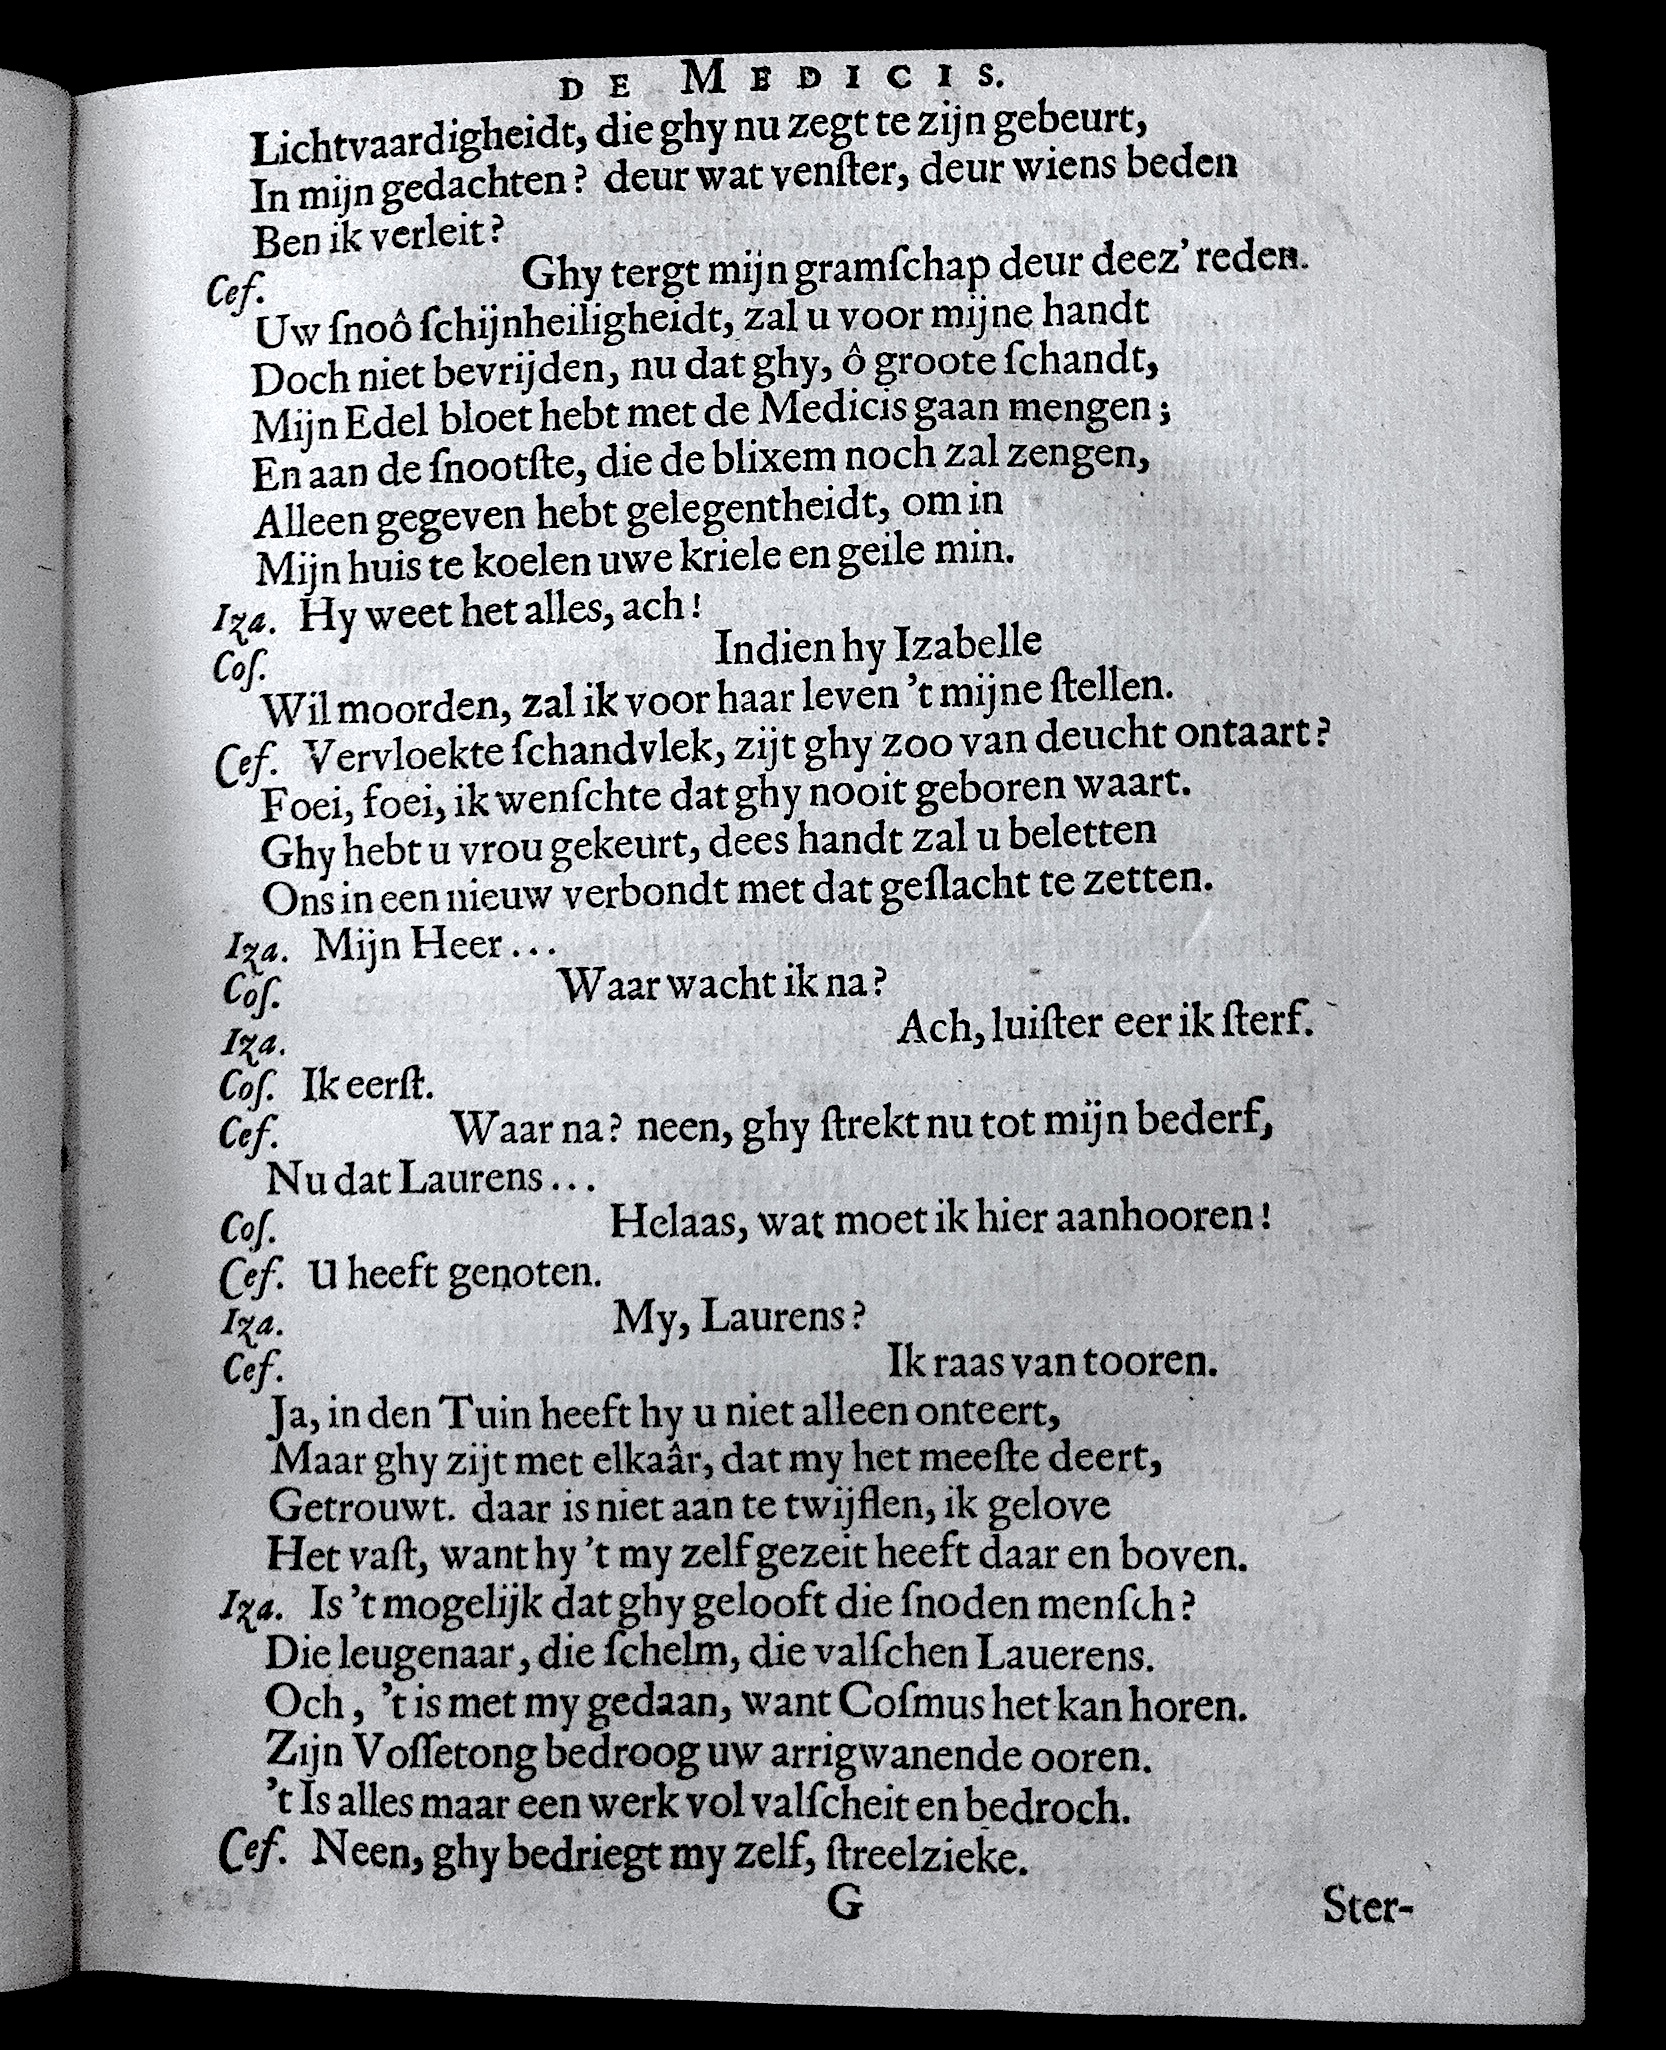 DE MEDICIS.
Lichtvaardigheidt, die ghy nu zegt te zijn gebeurt,
In mijn gedachten? deur wat venſter, deur wiens beden
Ben ik verleit?
Ceſ. Ghy tergt mijn gramſchap deur deez' reden.
Uw ſnoô ſchijnheiligheidt, zal u voor mijne handt
Doch niet bevrijden, nu dat ghy, ô groote ſchandt,
Mijn Edel bloet hebt met de Medicis gaan mengen;
En aan de ſnootſte, die de blixem noch zal zengen,
Alleen gegeven hebt gelegentheidt, om in
Mijn huis te koelen uwe kriele en geile min.
Iza. Hy weet het alles, ach!
Coſ. Indien hy Izabelle
Wil moorden, zal ik voor haar leven 't mijne ſtellen.
Ceſ. Vervloekte ſchandvlek, zijt ghy zoo van deucht ontaart?
Foei, foei, ik wenſchte dat ghy nooit geboren waart.
Ghy hebt u vrou gekeurt, dees handt zal u beletten
Ons in een nieuw verbondt met dat geſlacht te zetten.
Iza. Mijn Heer...
Coſ. Waar wacht ik na?
Iza. Ach, luiſter eer ik ſterf.
Coſ. Ik eerſt.
Ceſ. Waar na? neen, ghy ſtrekt nu tot mijn bederf,
Nu dat Laurens...
Coſ. Helaas, wat moet ik hier aanhooren!
Ceſ. U heeft genoten.
Iza. My, Laurens?
Ceſ. Ik raas van tooren.
Ja, in den Tuin heeft hy u niet alleen onteert,
Maar ghy zijt met elkaâr, dat my het meeſte deert,
Getrouwt. daar is niet aan te twijflen, ik gelove
Het vaſt, want hy 't my zelf gezeit heeft daar en boven.
Iza. Is 't mogelijk dat ghy gelooft die ſnoden menſch?
Die leugenaar, die ſchelm, die valſchen Lauerens.
Och, 't is met my gedaan, want Coſmus het kan horen.
Zijn Voſſetong bedroog uw arrigwanende ooren.
't Is alles maar een werk vol valſcheit en bedroch.
Ceſ. Neen, ghy bedriegt my zelf, ſtreelzieke.
G Ster-